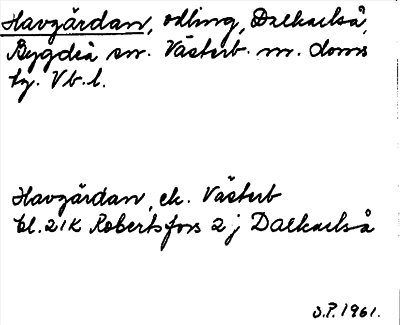 Havgärdan, odling, Dalkarlså,
Bygdeå sn. Västerb. m. doms
hg. Vb. l.
Havgärdan, ek. Västerb
bl. 21K Robertsfors 2 j Dalkarlså
O.P. 1961.